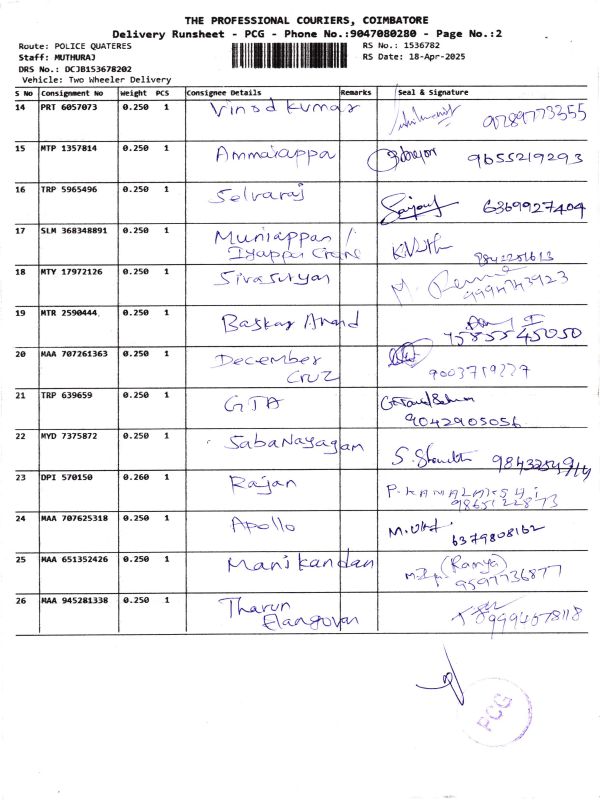 THE PROFESSIONAL COURIERS, COIMBATORE
Delivery Runsheet - PCG - Phone No.:9047080280 - Page No.:2
Route: POLICE QUATERES RS No.: 1536782
Staff: MUTHURAJ RS Date: 18-Apr-2025
DRS No.: DCJB153678202
Vehicle: Two Wheeler Delivery
S No Consignment No Weight PCS Consignee Details Remarks Seal & Signature
14 PRT 6057073 0.250 1 Vinod Kumar 9789773355
15 MTP 1357814 0.250 1 Ammaiappa 9655219293
16 TRP 5965496 0.250 1 Selvaraj 6369927404
17 SLM 368348891 0.250 1 Muniappan /
Iyappa Crane
18 MTY 17972126 0.250 1 Sivasuryan M.
9994743923
19 MTR 2590444 0.250 1 Baskar Anand
20 MAA 707261363 0.250 1 December
Cruz
21 TRP 639659 0.250 1 GTA
9042905056
22 MYD 7375872 0.250 1 Sabanayagam S.
23 DPI 570150 0.260 1 Rajan P. KAMALAKSHI
24 MAA 707625318 0.250 1 Apollo
6379808162
25 MAA 651352426 0.250 1 Manikandan (Ramya)
9597736877
26 MAA 945281338 0.250 1 Tharun
Elangovan 9994578118
PCG